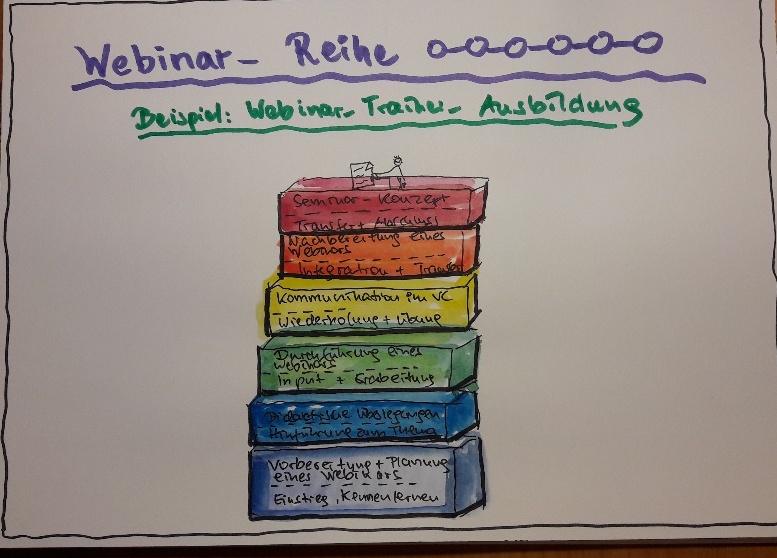 Webinar- Reihe
Beispiel: Webinar-Trainer-Ausbildung
Seminar-Konzept
Transfer + Abschluss
Nachbereitung eines
Webinars
Integration + Transfer
Kommunikation im VC
Wiederholung + Übung
Durchführung eines
Webinars
Input + Erarbeitung
Didaktische Überlegungen
Hinführung zum Thema
Vorbereitung + Planung
eines Webinars
Einstieg, Kennenlernen